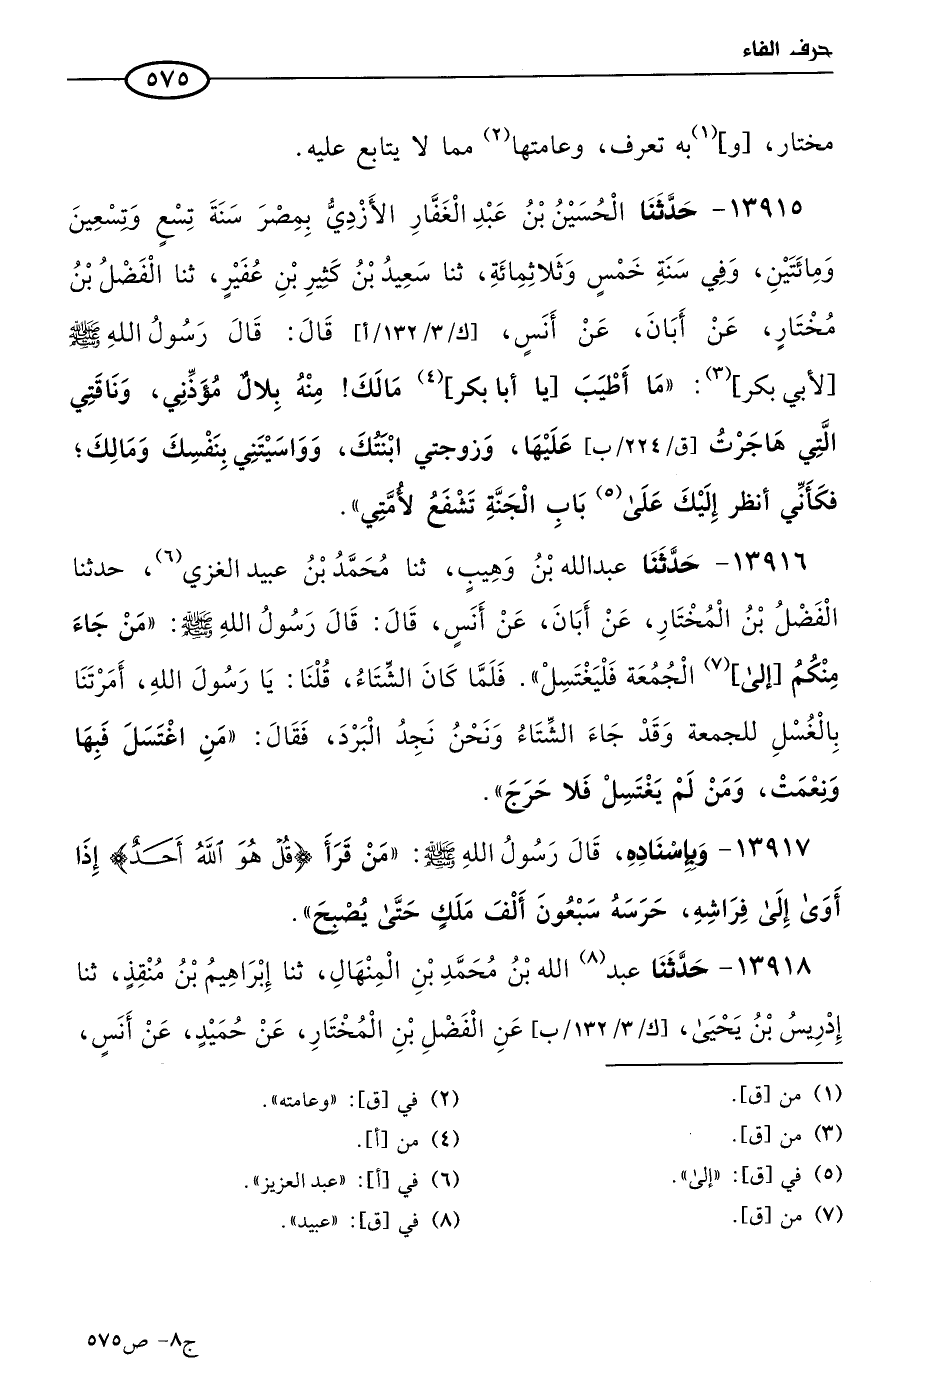 حرف الفاء
٥٧٥
مختار، [و](١)به تعرف، وعامتها(٢) مما لا يتابع عليه.
١٣٩١٥- حَدَّثَنَا الْحُسَيْنُ بْنُ عَبْدِ الْغَفَّارِ الأَزْدِيُّ بِمِصْرَ سَنَةَ تِسْعٍ وَتِسْعِينَ
وَمِائَتَيْنِ، وَفِي سَنَةِ خَمْسٍ وَثَلاثِمِائَةِ، ثنا سَعِيدُ بْنُ كَثِيرِ بْنِ عُفَيْرٍ، ثنا الْفَضْلُ بْنُ
مُخْتَارٍ، عَنْ أَبَانَ، عَنْ أَنَسٍ، [ك/١٣٢/٣/أ] قَالَ: قَالَ رَسُولُ اللهِ ﷺ
[لأبي بكر](٣): «مَا أَطْيَبَ [يا أبا بكر](٤) مَالَكَ! مِنْهُ بِلالٌ مُؤَذِّنِي، وَنَاقَتِي
الَّتِي هَاجَرْتُ [ق/٢٢٤/ب] عَلَيْهَا، وَزوجتي ابْنَتُكَ، وَوَاسَيْتَنِي بِنَفْسِكَ وَمَالِكَ؛
فكَأَنِّي أنظر إِلَيْكَ عَلَىٰ(٥) بَابِ الْجَنَّةِ تَشْفَعُ لأُمَّتِي».
١٣٩١٦- حَدَّثَنَا عبدالله بْنُ وَهِيبٍ، ثنا مُحَمَّدُ بْنُ عبيد الغزي(٦)، حدثنا
الْفَضْلُ بْنُ الْمُخْتَارِ، عَنْ أَبَانَ، عَنْ أَنَسٍ، قَالَ: قَالَ رَسُولُ اللهِ ﷺ: «مَنْ جَاءَ
مِنْكُمُ [إلىٰ](٧) الْجُمُعَة فَلْيَغْتَسِلْ». فَلَمَّا كَانَ الشِّتَاءُ، قُلْنَا: يَا رَسُولَ اللهِ، أَمَرْتَنَا
بِالْغُسْلِ للجمعة وَقَدْ جَاءَ الشِّتَاءُ وَنَحْنُ نَجِدُ الْبَرْدَ، فَقَالَ: «مَنِ اغْتَسَلَ فَبِهَا
وَنِعْمَتْ، وَمَنْ لَمْ يَغْتَسِلْ فَلا حَرَجَ».
١٣٩١٧- وَبِإِسْنَادِهِ، قَالَ رَسُولُ اللهِ ﷺ: «مَنْ قَرَأَ ﴿قُلْ هُوَ ٱللَّهُ أَحَدٌ﴾ إِذَا
أَوَىٰ إِلَىٰ فِرَاشِهِ، حَرَسَهُ سَبْعُونَ أَلْفَ مَلَكٍ حَتَّىٰ يُصْبِحَ».
١٣٩١٨- حَدَّثَنَا عبد(٨) الله بْنُ مُحَمَّدِ بْنِ الْمِنْهَالِ، ثنا إِبْرَاهِيمُ بْنُ مُنْقِذٍ، ثنا
إِدْرِيسُ بْنُ يَحْيَىٰ، [ك/١٣٢/٣/ب] عَنِ الْفَضْلِ بْنِ الْمُخْتَارِ، عَنْ حُمَيْدٍ، عَنْ أَنَسٍ،
(١) من [ق].
(٢) في [ق]: «وعامته».
(٣) من [ق].
(٤) من [أ].
(٥) في [ق]: «إلىٰ».
(٦) في [أ]: «عبد العزيز».
(٧) من [ق].
(٨) في [ق]: «عبيد».
ج٨- ص٥٧٥